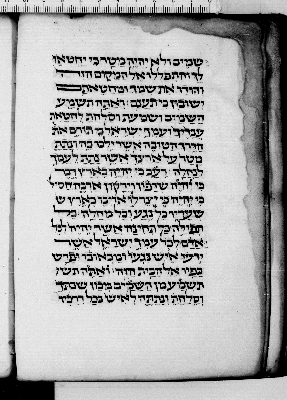 שמים ולא יהיה מטר כי יחטאו
לך והתפללו אל המקום הזה
והודו את שמך ומחטאתם
ישובון כי תענם ואתה תשמע
השמים ושמעת וסלחת לחטאת
עבדיך ועמך ישראל כי תורם את
הדרך הטובה אשר ילכו בה ונתת
מטר על ארצך אשר נתתה לעמך
לנחלה רעב כי יהיה בארץ דבר
כי יהיה שדפון וירקון ארבה חסיל
כי יהיה כי יצר לו איבו בארץ ש
שעריו כל נגע וכל מחלה כל
תפילה כל תחינה אשר יהיה לכל
אדם לכל עמך ישראל אשר
ידעו איש נגעו ומכאובו ופרש
כפיו אל הבית הזה ואתה תש
תשמע מן השמים מכון שבתך
וסלחת ונתתה לאיש ככל דרכיו